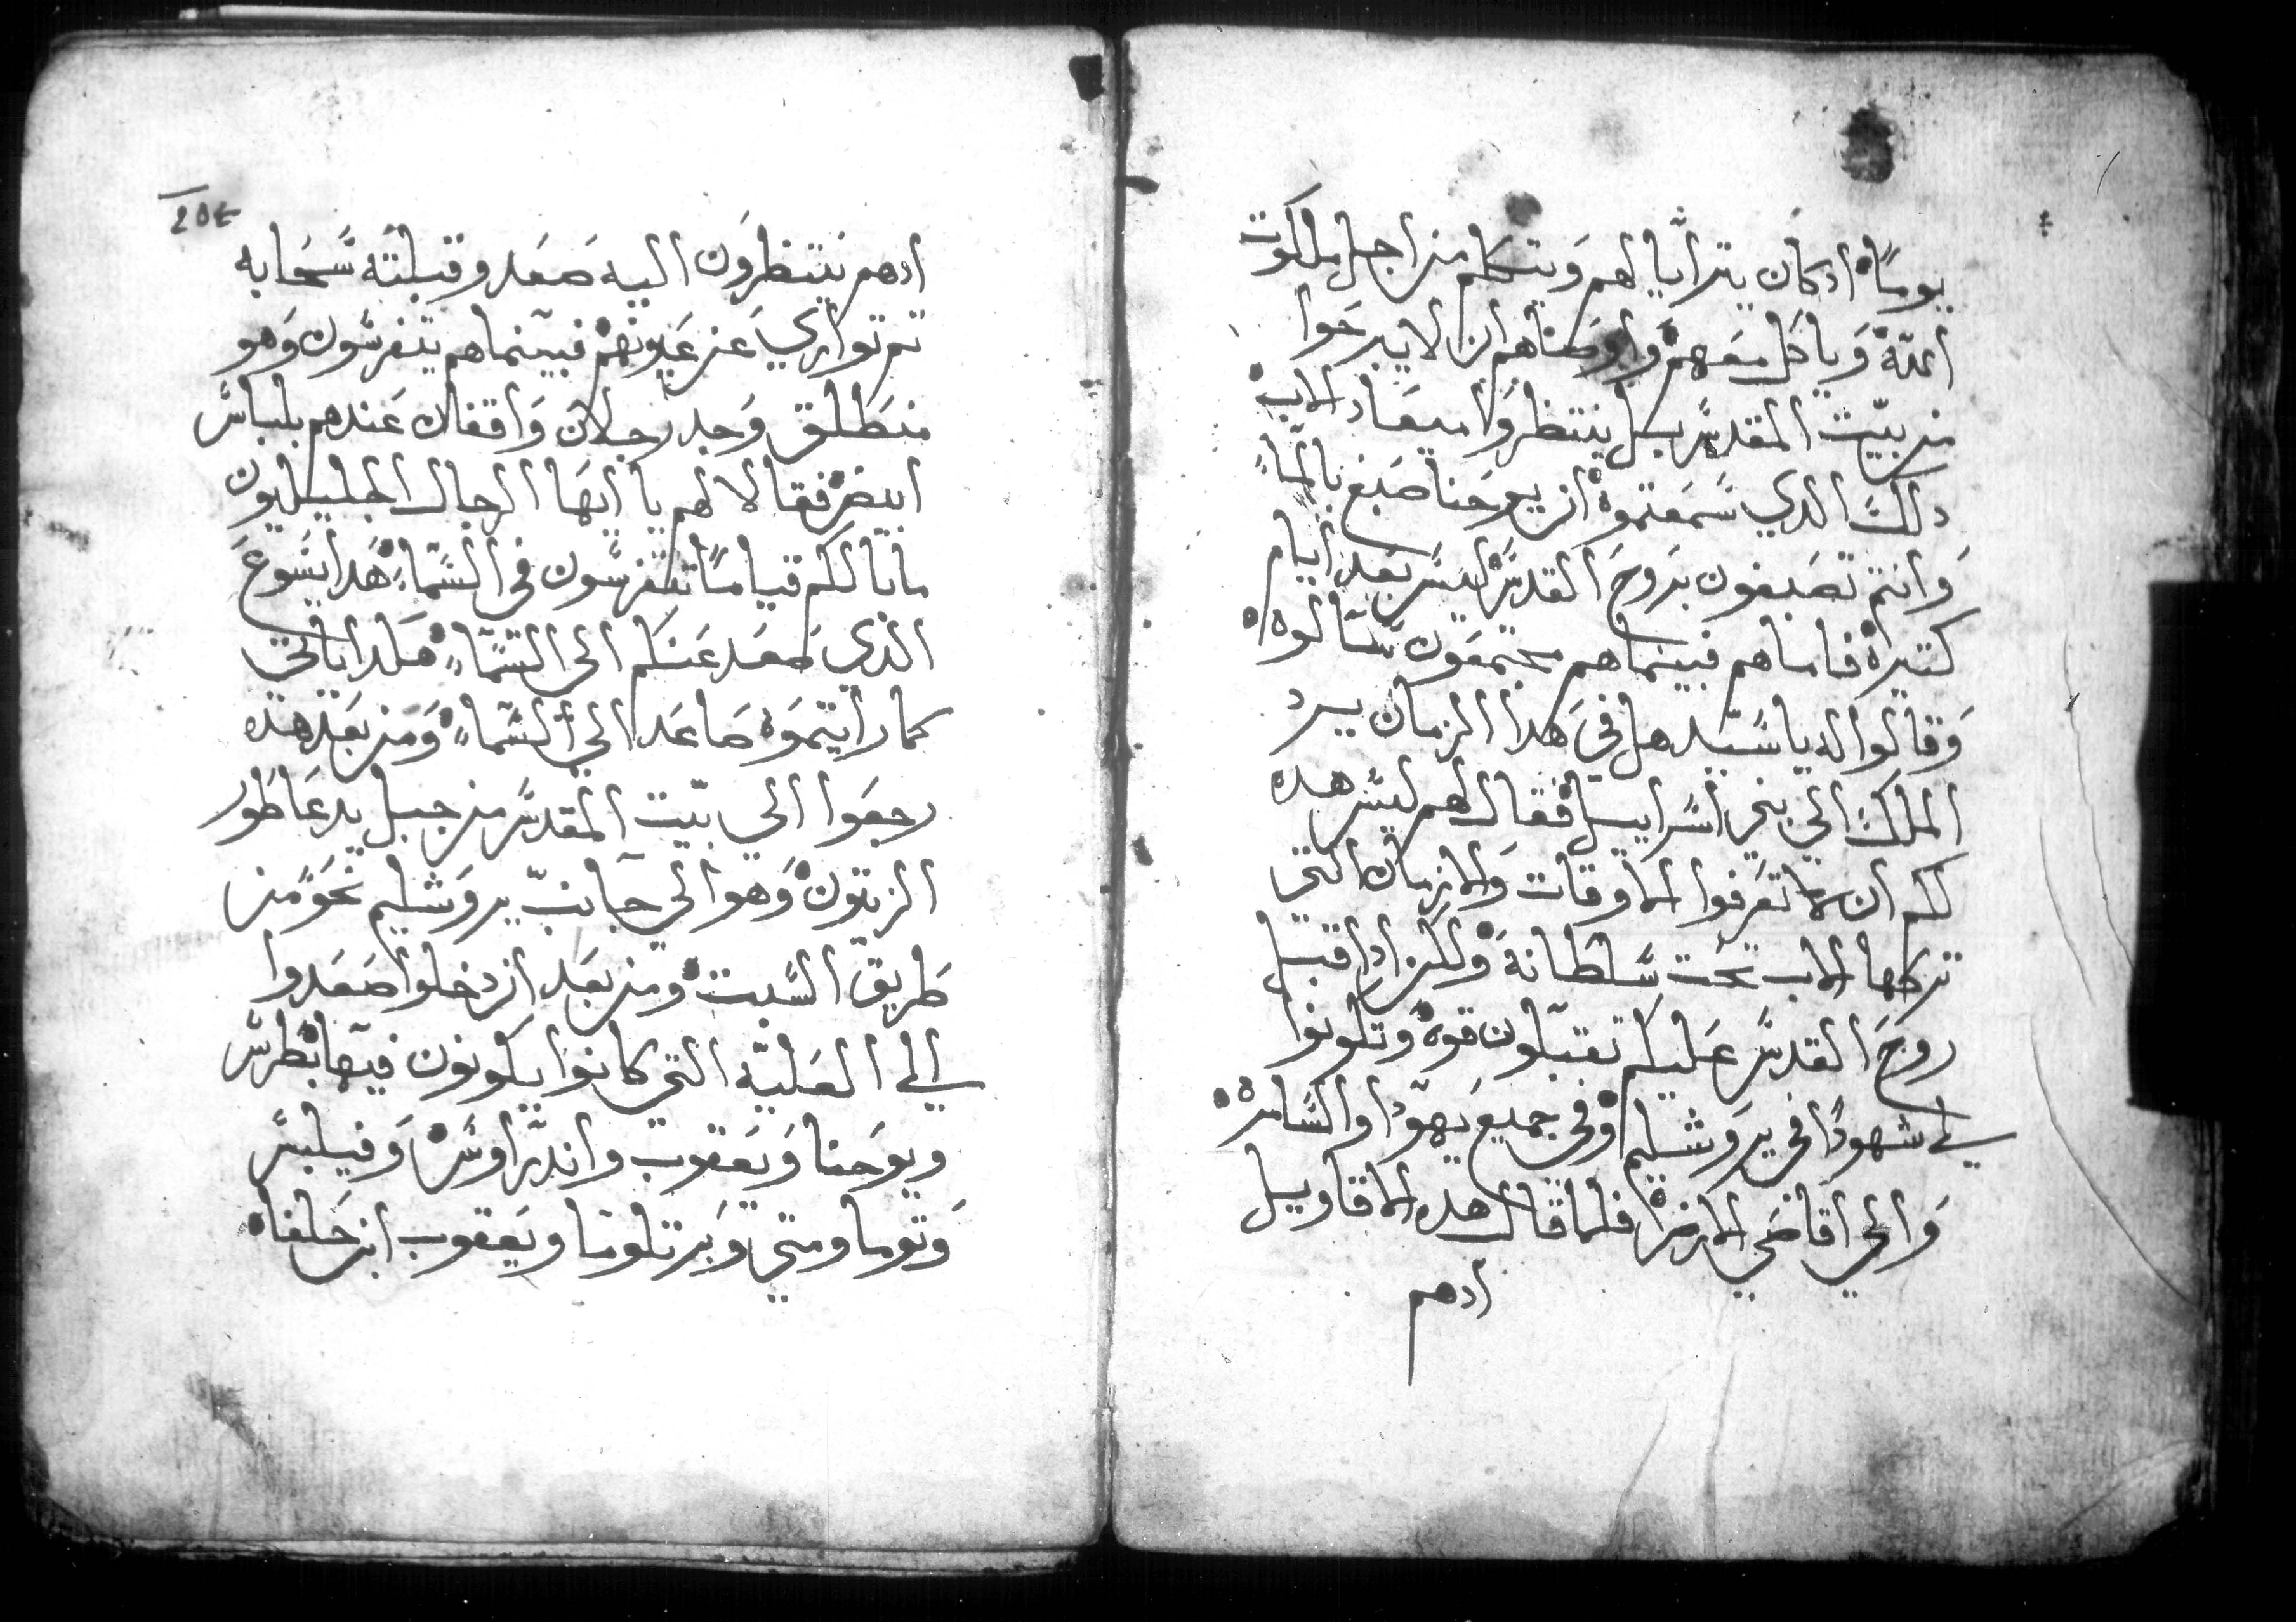 يوماً اد كان يترأيا لهم وَيتكلم من اجل ملكوت
اللّة وَياكل معَهم وَاوصَاهم ان لا يبرحَوا
من بيّت المقدسَ بل ينتظروَا ميعَاد الاب
دلكَ الدي سَمعتموة ان يوحَنا صَبغ بالمآ
وَانتم تصَبغون بروحَ القدسَ ليسَ بعَد أيام
كتيراة فاماهم فبينماهم مجتمعَون سَالوة
وَقالوا له ياسَيّد هل في هَدا الزمان يرد
الملكَ الي بني اسَراييل فقال لهم ليسَ هدة
لكم ان لا تعَرفوا الاوقات والازمان التي
تركها الاب تحَت سَلطانة وَلكن ادا قبل
روحَ القدسَ عَليكم تقبلون قوة وَتكونوا
لي شهوداً في يروَشليم وَفي جميع يَهوّدا والسَامرة
وَالي اقاصَي الارض فلما قال هدة الاقاويل
ادهم
204
ادهم ينتظروَن اليه صَعَد وقبلتَه سَحَابه
تم تواري عَن عَيونهم فبينماهم يتفرسَون وَهو
منطَلق وَجد رجلان وَاقفان عَندهم بلباسَ
ابيض فقالا لهم يا ايهَا الرجال الجليليون
مابالكم قياماً تتفرسَون في السَمآ هَدا يسَوع
الدي صَعَد عَنكم الي السَمآ هَكدا ياتي
كما رايتموَة صَاعَد الي السَمآ وَمن بعَد هدة
رجعَوا الي بيّت المقدسَ من جبل يدعَا طَور
الزيتون وَهو الي جانبّ يروَشليم نحَوَ من
طَريق السَبت ومن بعَد ان دخلوا صَعَدوا
الي العَليّه التي كانوا يكونون فيهَا بطرسَ
ويوحَنا وَيعَقوب واندرّاوسَ وَفيلبسَ
وَتوما ومتي وَبرتلوما ويعَقوب ابن حَلفاة